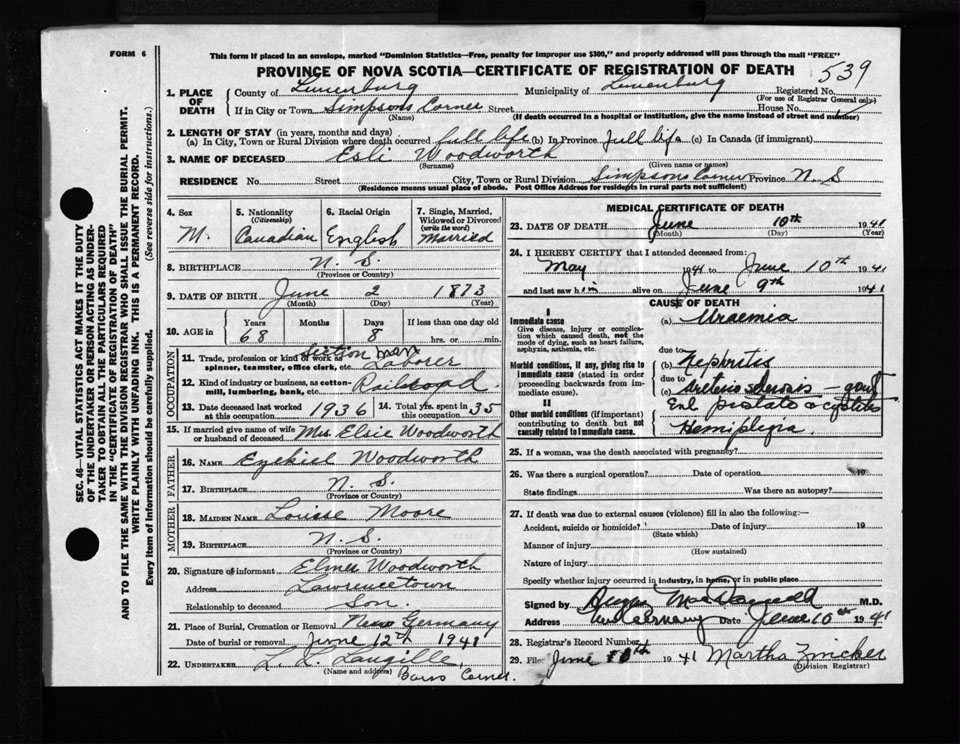 FORM 6
This form if placed in an envelope, marked "Dominion Statistics—Free, penalty for improper use $300," and properly addressed will pass through the mail "FREE"
PROVINCE OF NOVA SCOTIA—CERTIFICATE OF REGISTRATION OF DEATH 539
SEC. 46—VITAL STATISTICS ACT MAKES IT THE DUTY
OF THE UNDERTAKER OR PERSON ACTING AS UNDER-
TAKER TO OBTAIN ALL THE PARTICULARS REQUIRED
IN THE "CERTIFICATE OF REGISTRATION OF DEATH"
AND TO FILE THE SAME WITH THE DIVISION REGISTRAR WHO SHALL ISSUE THE BURIAL PERMIT.
WRITE PLAINLY WITH UNFADING INK. THIS IS A PERMANENT RECORD.
Every item of Information should be carefully supplied. (See reverse side for instructions.)
1. PLACE OF DEATH County of Lunenburg Municipality of Lunenburg Registered No.
(For use of Registrar General only)
If in City or Town Simpsons Corner Street House No.
(Name) (If death occurred in a hospital or institution, give the name instead of street and number)
2. LENGTH OF STAY (in years, months and days)
(a) In City, Town or Rural Division where death occurred full life (b) In Province full life (c) In Canada (if immigrant)
3. NAME OF DECEASED Esli Woodworth
(Surname) (Given name or names)
RESIDENCE No. Street City, Town or Rural Division Simpsons Corner Province N. S
(Residence means usual place of abode. Post Office Address for residents in rural parts not sufficient)
4. Sex M.
5. Nationality (Citizenship) Canadian
6. Racial Origin English
7. Single, Married, Widowed or Divorced (write the word) Married
8. BIRTHPLACE N. S.
(Province or Country)
9. DATE OF BIRTH June 2 1873
(Month) (Day) (Year)
10. AGE in Years 68 Months Days 8 If less than one day old hrs. or min.
OCCUPATION
11. Trade, profession or kind of work as spinner, teamster, office clerk, etc. Section man Laborer
12. Kind of industry or business, as cotton-mill, lumbering, bank, etc. Railroad.
13. Date deceased last worked at this occupation 1936 14. Total yrs. spent in this occupation 35
15. If married give name of wife or husband of deceased Mrs Elsie Woodworth
FATHER
16. NAME Ezikiel Woodworth
17. BIRTHPLACE N. S.
(Province or Country)
MOTHER
18. MAIDEN NAME Louisse Moore
19. BIRTHPLACE N. S.
(Province or Country)
20. Signature of informant Elmer Woodworth
Address Lawrencetown
Relationship to deceased Son.
21. Place of Burial, Cremation or Removal New Germany
Date of burial or removal June 12th 1941
22. UNDERTAKER L. L. Langille,
(Name and address) Barss Corner.
MEDICAL CERTIFICATE OF DEATH
23. DATE OF DEATH June 10th 1941
(Month) (Day) (Year)
24. I HEREBY CERTIFY that I attended deceased from:
May 1941 to June 10th 1941
and last saw him alive on June 9th 1941
CAUSE OF DEATH
I
Immediate cause
Give disease, injury or complication which caused death, not the mode of dying, such as heart failure, asphyxia, asthenia, etc.
(a) Uraemia
due to
Morbid conditions, if any, giving rise to immediate cause (stated in order proceeding backwards from immediate cause).
(b) Nephritis
due to
(c) Arterio sclerosis – gout
II
Other morbid conditions (if important) contributing to death but not causally related to Immediate cause.
Enl prostate c cystitis
Hemiplegia.
25. If a woman, was the death associated with pregnancy?
26. Was there a surgical operation? Date of operation 19
State findings Was there an autopsy?
27. If death was due to external causes (violence) fill in also the following:—
Accident, suicide or homicide? Date of injury 19
(State which)
Manner of injury
(How sustained)
Nature of injury
Specify whether injury occurred in industry, in home, or in public place
Signed by MacDonald M.D.
Address New Germany Date June 10th 1941
28. Registrar's Record Number
29. Filed June 10th 1941 Martha Zwicker
(Division Registrar)